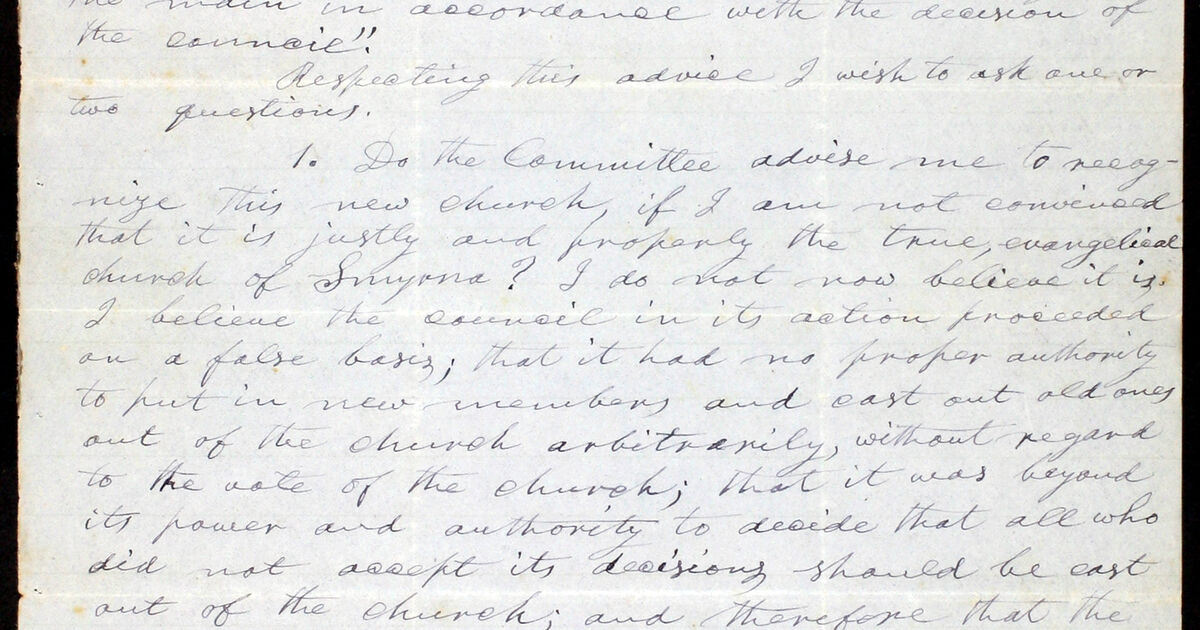 the main in accordance with the decision of
the council".
Respecting this advice I wish to ask one or
two questions.
1. Do the Committee advise me to recog-
nize this new church, if I am not convinced
that it is justly and properly the true, evangelical
church of Smyrna? I do not now believe it is.
I believe the council in its action proceeded
on a false basis; that it had no proper authority
to put in new members and cast out old ones
out of the church arbitrarily, without regard
to the vote of the church; that it was beyond
its power and authority to decide that all who
did not accept its decisions should be cast
out of the church; and therefore that the